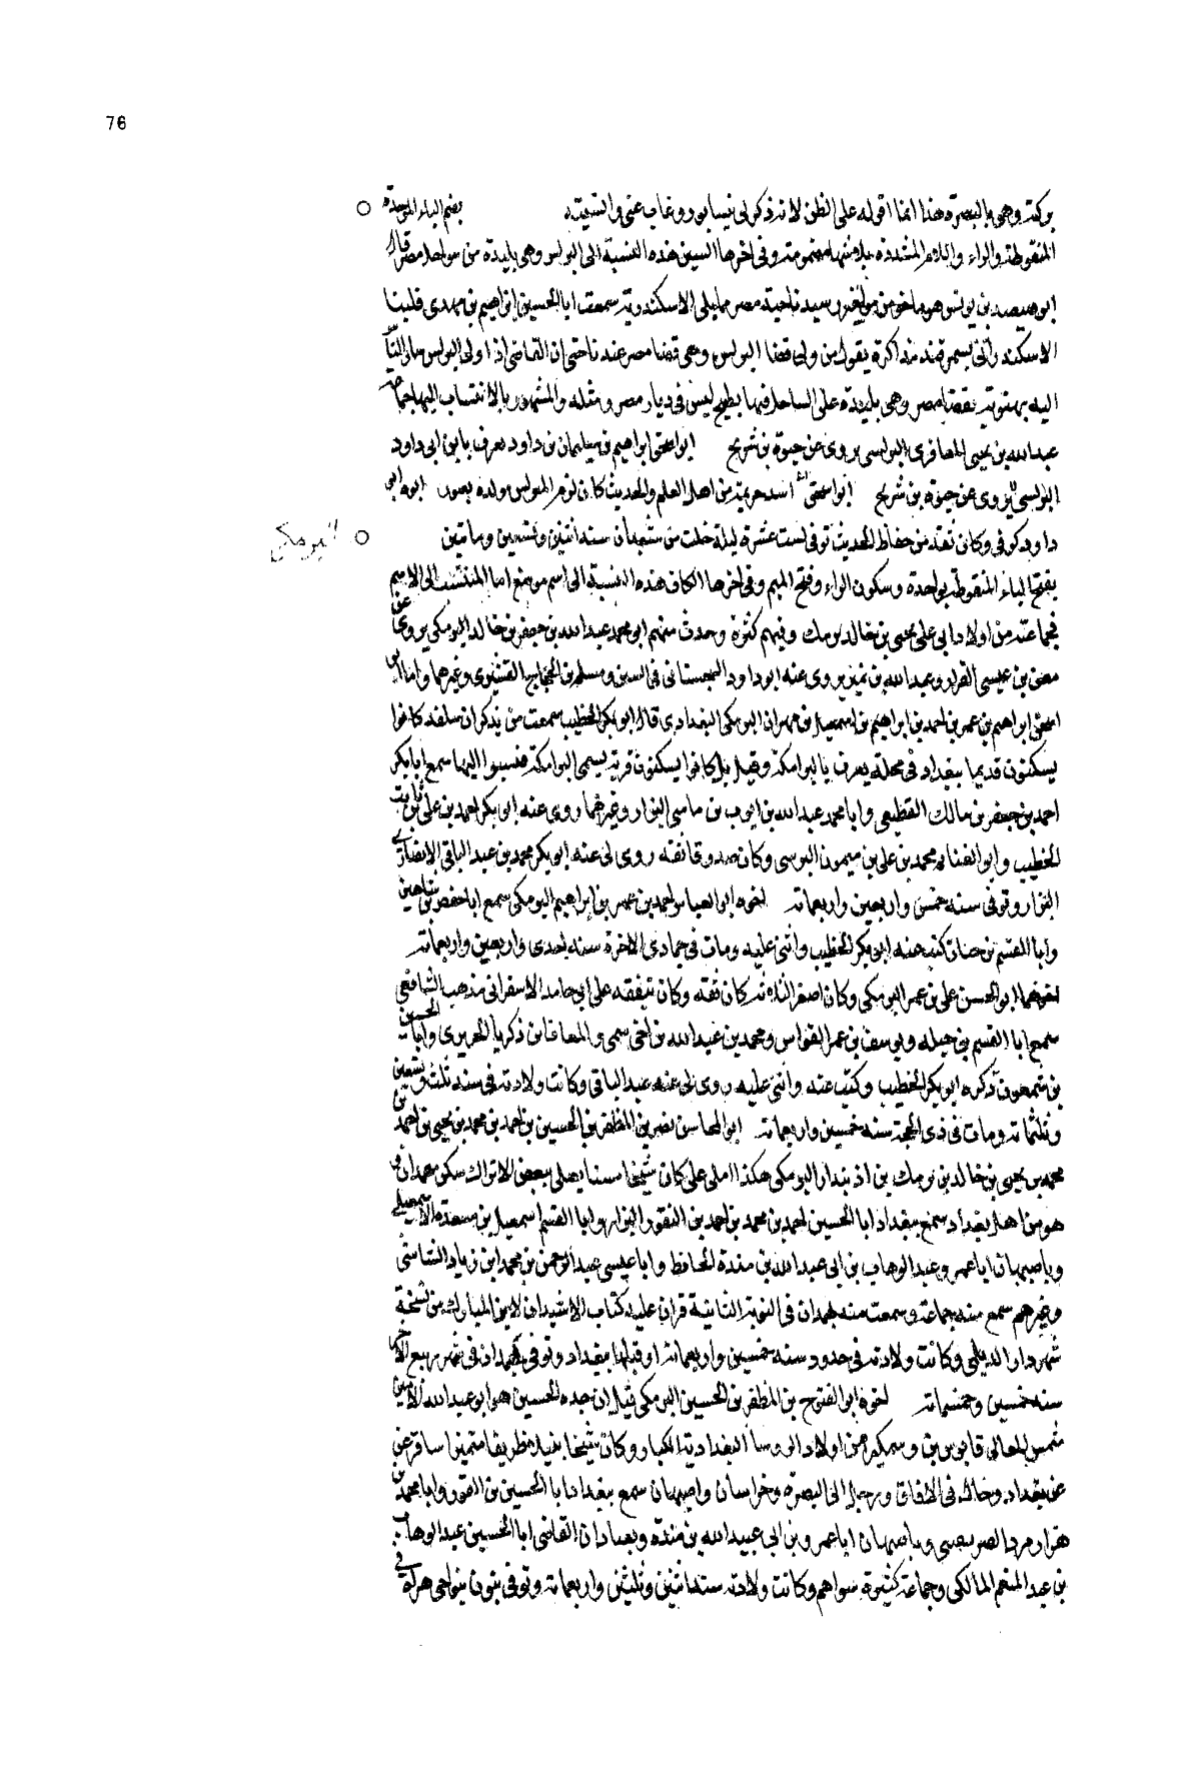 76
بركة وهى بالبصرة هذا انما اقوله على الظن لانه ذكر لى نيسابور وغاب عنى والنسبة بضم الباء الموحدة
المنقوطة والراء واللام المشددة مضمومة وفى اخرها السين هذه النسبة الى البرلس وهى بليدة من سواحل مصر قال
ابو سعيد بن يونس هو ماخور من مواخير رشيد ناحية مصر مما يلى الاسكندرية سمعت ابا الحسين ابراهيم بن مهدى قلينا
الاسكندرانى بسمرقند مذاكرة يقول من ولى قضا البرلس وهى قضا مصر عند ناحتى ان القاضى اذا ولى البرلس
اليه بقضا مصر وهى بليدة على الساحل فيها بطيخ ليس فى ديار مصر مثله والمشهور بالانتساب اليها جماعة
عبد الله بن يحيى المعافرى البرلسى يروى عن حيوة بن شريح ابو اسحق ابراهيم بن سليمان بن داود يعرف بابن ابى داود
البرلسى يروى عن حيوة بن شريح ابو اسحق اسد خزيمة من اهل العلم والحديث كان لزم البرلس مولده بصور ابوه ابى
داود كوفى وكان ثقة من حفاظ الحديث توفى لست عشرة ليلة خلت من شعبان سنة اثنين وتسعين وماتين
البرمكى
بفتح الباء المنقوطة بواحدة وسكون الراء وفتح الميم وفى اخرها الكاف هذه النسبة الى اسم وموضع اما المنتسب الى الاسم
فجماعة من اولاد ابى على يحيى بن خالد برمك وفيهم كثرة وحدث منهم ابو محمد عبد الله بن جعفر بن خالد البرمكى يروى عن
معن بن عيسى القزاز وعبد الله بن نمير يروى عنه ابو داود السجستانى فى السنن ومسلم بن الحجاج القشيرى وغيرهما واما ابو
اسحق ابراهيم بن عمر بن احمد بن ابراهيم بن اسمعيل بن مهران البرمكى البغدادى قال ابو بكر الخطيب سمعت من يذكر ان سلفه كانوا
يسكنون قديما ببغداد فى محلة يعرف بالبرامكة وقيل بل كانوا يسكنون قرية يسمى البرامكة فنسبوا اليها سمع ابا بكر
احمد بن جعفر بن مالك القطيعى وابا محمد عبد الله بن ايوب بن ماسى البزاز وغيرهما روى عنه ابو بكر احمد بن على ثابت
الخطيب وابو الغنائم محمد بن على بن ميمون النرسى وكان صدوقا ثقة روى لى عنه ابو بكر محمد بن عبد الباقى الانصارى
البزار وتوفى سنة خمس واربعين واربعماية اخوه ابو العباس احمد بن عمر بن ابراهيم البرمكى سمع ابا حفص بن شاهين
وابا القسم بن حبابة كتب عنه ابو بكر الخطيب واثنى عليه ومات فى جمادى الاخرة سنة احدى واربعين واربعماية
اخوهما ابو الحسن على بن عمر البرمكى وكان اصغر الثلاثة كان ثقة وكان تفقه على ابى حامد الاسفراينى مذهب الشافعى
سمع ابا القسم بن حبابه ويوسف بن عمر القواس ومحمد بن عبد الله بن اخى ميمى والمعافا بن زكريا الجريرى وابا الحسين
بن سمعون ذكره ابو بكر الخطيب وكتب عنه واثنى عليه روى لى عنه عبد الباقى وكانت ولادته فى سنة ثلث وسبعين
وثلثماية ومات فى ذى الحجة سنة خمسين واربعماية ابو المحاسن نصر بن المظفر بن الحسين بن احمد بن محمد بن يحيى بن احمد بن
محمد بن يحيى بن خالد بن برمك بن اذ بندار البرمكى هكذا املى على كان شيخا مسنا يصلى ببعض الاتراك سكن همدان
هو من اهل بغداد سمع ببغداد ابا الحسين احمد بن محمد بن احمد بن النقور البزاز وابا القسم اسمعيل بن مسعدة الاسمعيلى
وباصبهان ابا عمرو عبد الوهاب بن ابى عبد الله بن مندة الحافظ وابا عيسى عبد الرحمن بن محمد ابن زياد الشاشى
وغيرهم سمع منه جماعة وسمعت منه بهمدان فى النوبة الثانية قرات عليه كتاب الاستيذان لابن المبارك من نسخة
شهردار الديلمى وكانت ولادته فى حدود سنة خمسين واربعماية او قبلها ببغداد وتوفى بهمدان فى شهر ربيع الاخر
سنة خمسين وخمسماية اخوه ابو الفتوح بن المظفر بن الحسين البرمكى قيل ان جده الحسين هو ابو عبد الله الامين
شمس المعالى قابوس بن وشمكير من اولاد الروسا البغدادية الكبار وكان شيخا ظريفا متميزا سافر عن
عن بغداد وجال فى الافاق ورحل الى البصرة وخراسان واصبهان سمع ببغداد ابا الحسين بن النقور وابا محمد بن
هزارمرد الصريفينى وباصبهان ابا عمرو بن ابى عبيد الله بن مندة وبعبادان القاضى ابا الحسين عبد الوهاب
بن عبد المنعم المالكى وجماعة كثيرة سواهم وكانت ولادته سنة اثنين وثلثين واربعماية وتوفى ببون بنواحى هراة فى